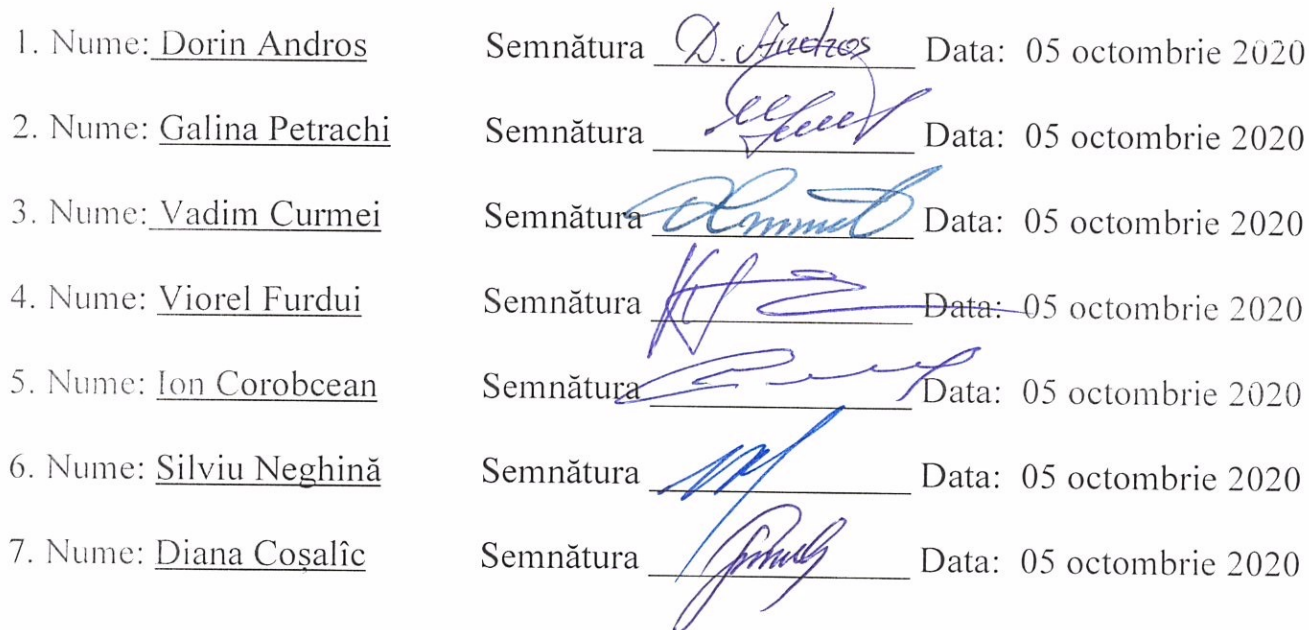 1. Nume: Dorin Andros Semnătura D. Andros Data: 05 octombrie 2020
2. Nume: Galina Petrachi Semnătura Data: 05 octombrie 2020
3. Nume: Vadim Curmei Semnătura Data: 05 octombrie 2020
4. Nume: Viorel Furdui Semnătura Data: 05 octombrie 2020
5. Nume: Ion Corobcean Semnătura Data: 05 octombrie 2020
6. Nume: Silviu Neghină Semnătura Data: 05 octombrie 2020
7. Nume: Diana Coșalîc Semnătura Data: 05 octombrie 2020